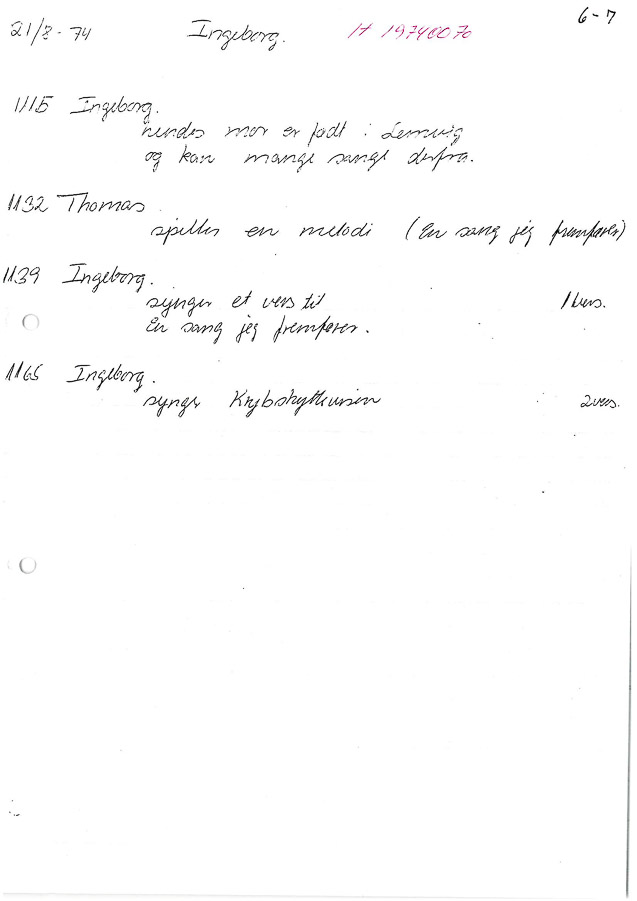 21/8-74 Ingeborg. H 19740070 6-7
1115 Ingeborg.
hendes mor er født i Lemvig
og kan mange sange derfra.
1132 Thomas
spiller en melodi (En sang jeg fremfører)
1139 Ingeborg.
synger et vers til 1 vers.
En sang jeg fremfører.
1165 Ingeborg.
synger Krybskyttevisen 2 vers.